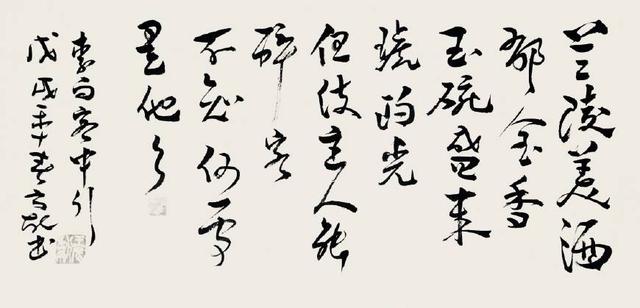 兰陵美酒
郁金香
玉碗盛来
琥珀光
但使主人能
醉客
不知何处
是他乡
李白客中行
戊戌年春书